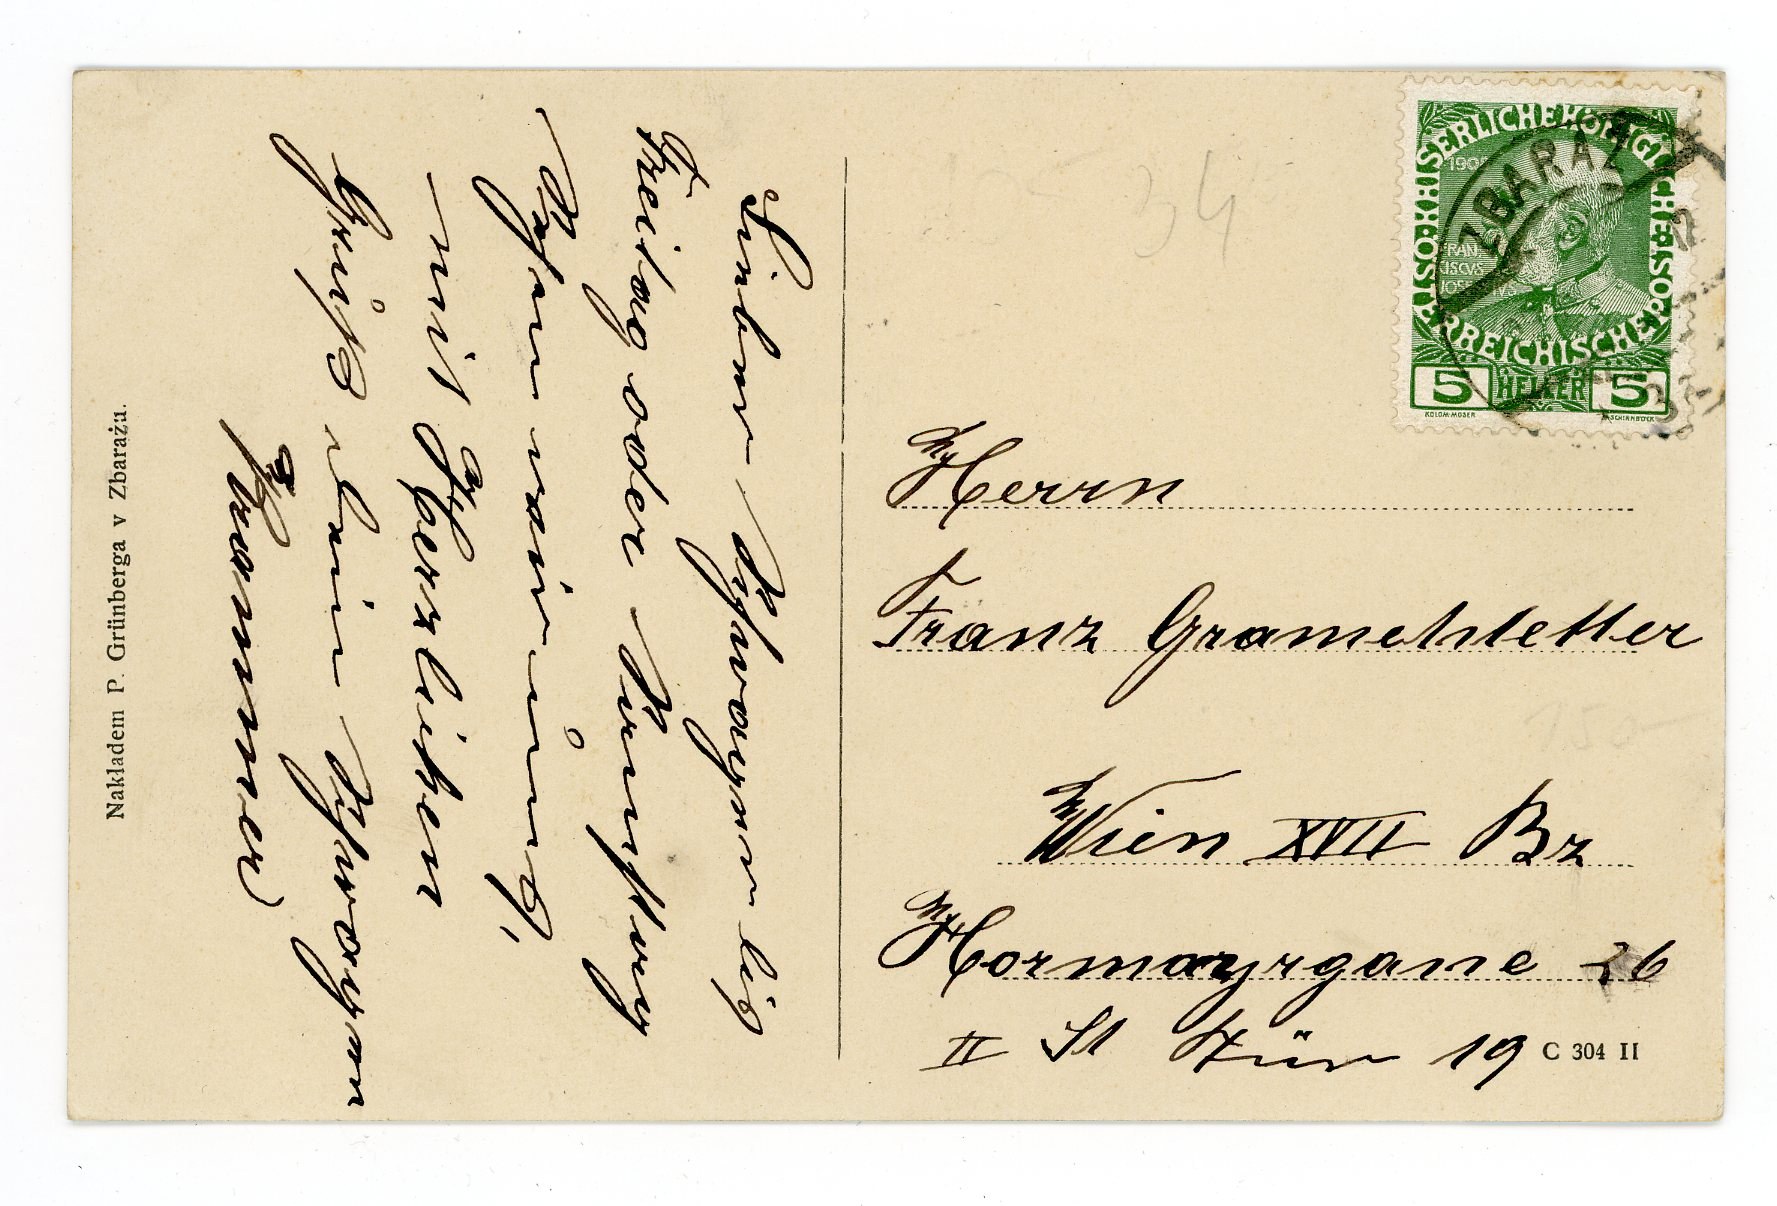 Lieber Schwager bis
Freitag oder Sonntag
Schon
mit Herzlichen
Gruß dein Schwager
Krammer
Nakładem P. Grünberga v Zbarażu.
KAISERLICHE KÖNIGLICHE ÖSTERREICHISCHE POST
1908
FRAN
CISCVS
IOSEPHVS
5 HELLER 5
KOLOM·MOSER
F·SCHIRNBÖCK
ZBARAŻ
34
Herrn
Franz Grametstetter
Wien XVII Bz
Hormayrgasse 26
II St Tür 19
C 304 II